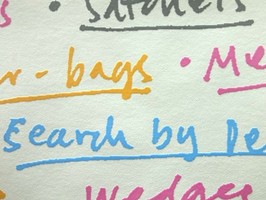 s • Satchels
r-bags • Me
Search by De
Wedges